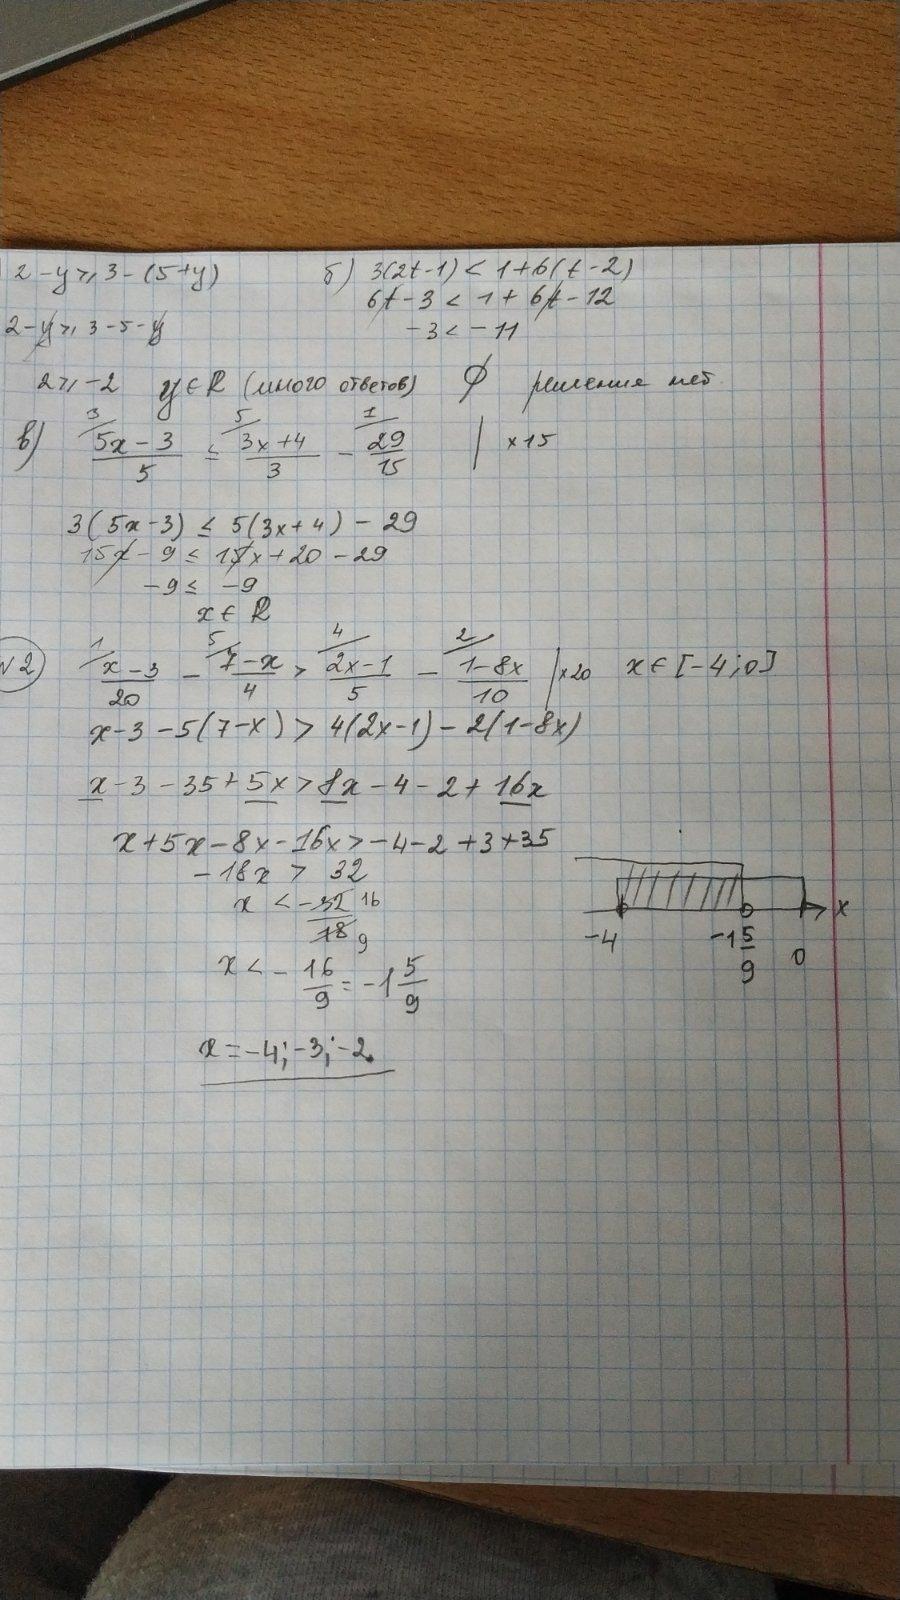 2 - y ⩾ 3 - (5 + y)
2 - y ⩾ 3 - 5 - y
2 ⩾ -2 y ∈ R (много ответов)
б) 3(2t - 1) < 1 + 6(t - 2)
6t - 3 < 1 + 6t - 12
-3 < -11
∅ решение нет
в) 3/ (5x - 3)/5 ≤ 5/ (3x + 4)/3 - 1/ 29/15 | ×15
3(5x - 3) ≤ 5(3x + 4) - 29
15x - 9 ≤ 15x + 20 - 29
-9 ≤ -9
x ∈ R
№2) 1/ (x - 3)/20 - 5/ (7 - x)/4 > 4/ (2x - 1)/5 - 2/ (1 - 8x)/10 | ×20 x ∈ [-4; 0]
x - 3 - 5(7 - x) > 4(2x - 1) - 2(1 - 8x)
x - 3 - 35 + 5x > 8x - 4 - 2 + 16x
x + 5x - 8x - 16x > -4 - 2 + 3 + 35
-18x > 32
x < -32/18 16 9
x < - 16/9 = -1 5/9
x = -4; -3; -2.
x
-4 -1 5/9 0